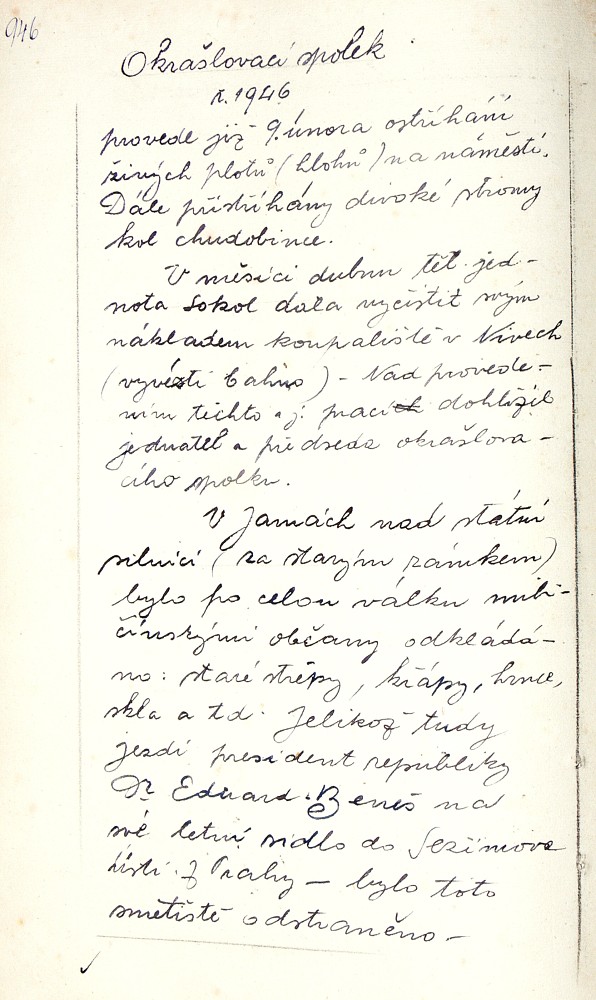 946
Okrašlovací spolek
r. 1946
provede již 9. února ostříhání
živých plotů (hlohů) na náměstí.
Dále přistříhány divoké stromy
kol chudobince.
V měsíci dubnu těl. jed-
nota Sokol dala vyčistit svým
nákladem koupaliště v Nivech
(vyvézti bahno) - Nad provede-
ním těchto a j. prací dohlížel
jednatel a předseda okrašlova-
cího spolku.
V Jamách nad státní
silnicí (za starým zámkem)
bylo po celou válku mili-
čínskými občany odkládá-
no: staré střepy, křápy, hrnce,
skla a td. Jelikož tudy
jezdí president republiky
Dr Eduard Beneš na
své letní sídlo do Sezimova
Ústí z Prahy — bylo toto
smetiště odstraněno —